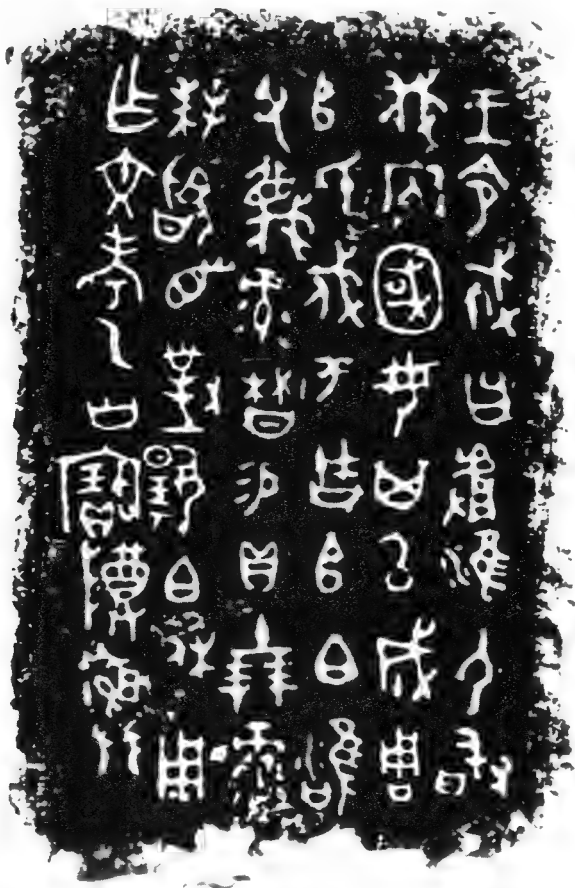 王令𢦚曰𠭯淮尸敢
伐內國女其以成周
𠂤氏戍于古𠂤白雝
父蔑彔曆易貝十朋彔
拜𩒨首對揚白休用
乍文考乙公寶尊彝